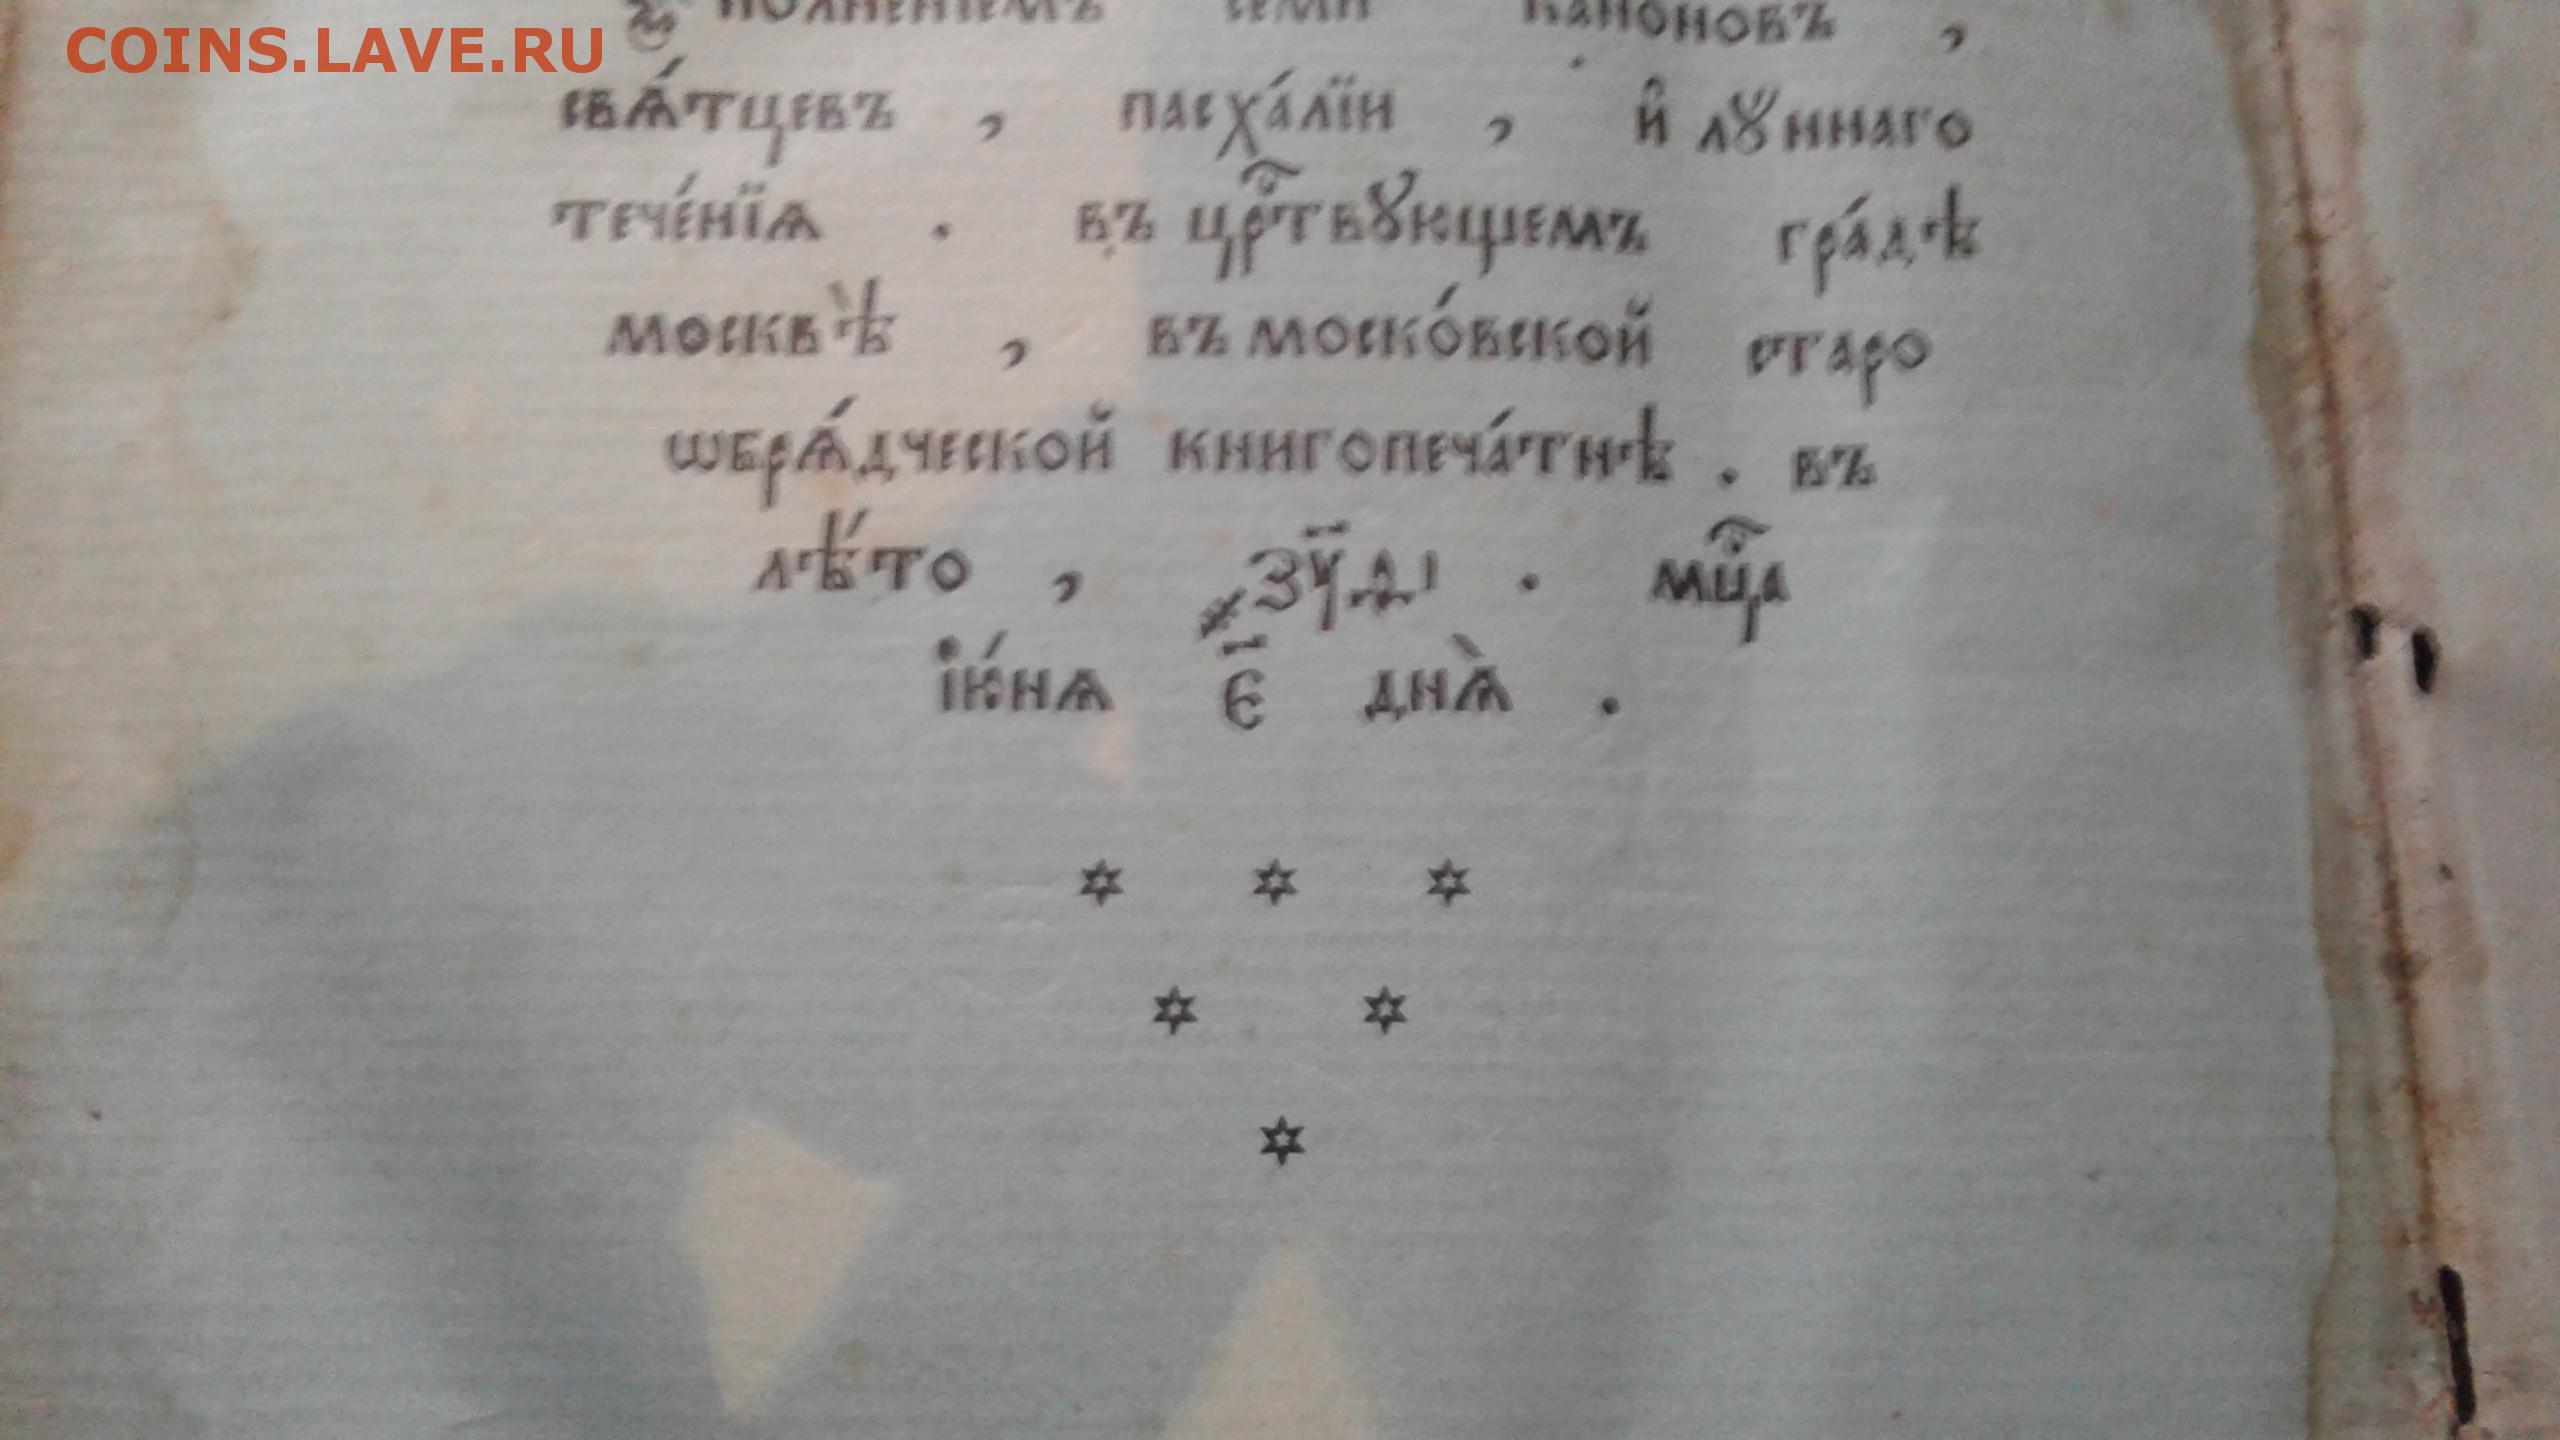 COINS.LAVE.RU
полненіемъ семи каноновъ ,
свѧ́тцевъ , пасха́лїи , и҆ лꙋннаго
тече́нїѧ . въ црⷭ҇твꙋющемъ гра́дѣ
москвѣ̀ , въ моско́вской старо
ѡбрѧ́дческой книгопеча́тнѣ . въ
лѣ́то , ҂зꙋ҃ді . мцⷭ҇а
ію́нѧ є҃ днѧ̀ .